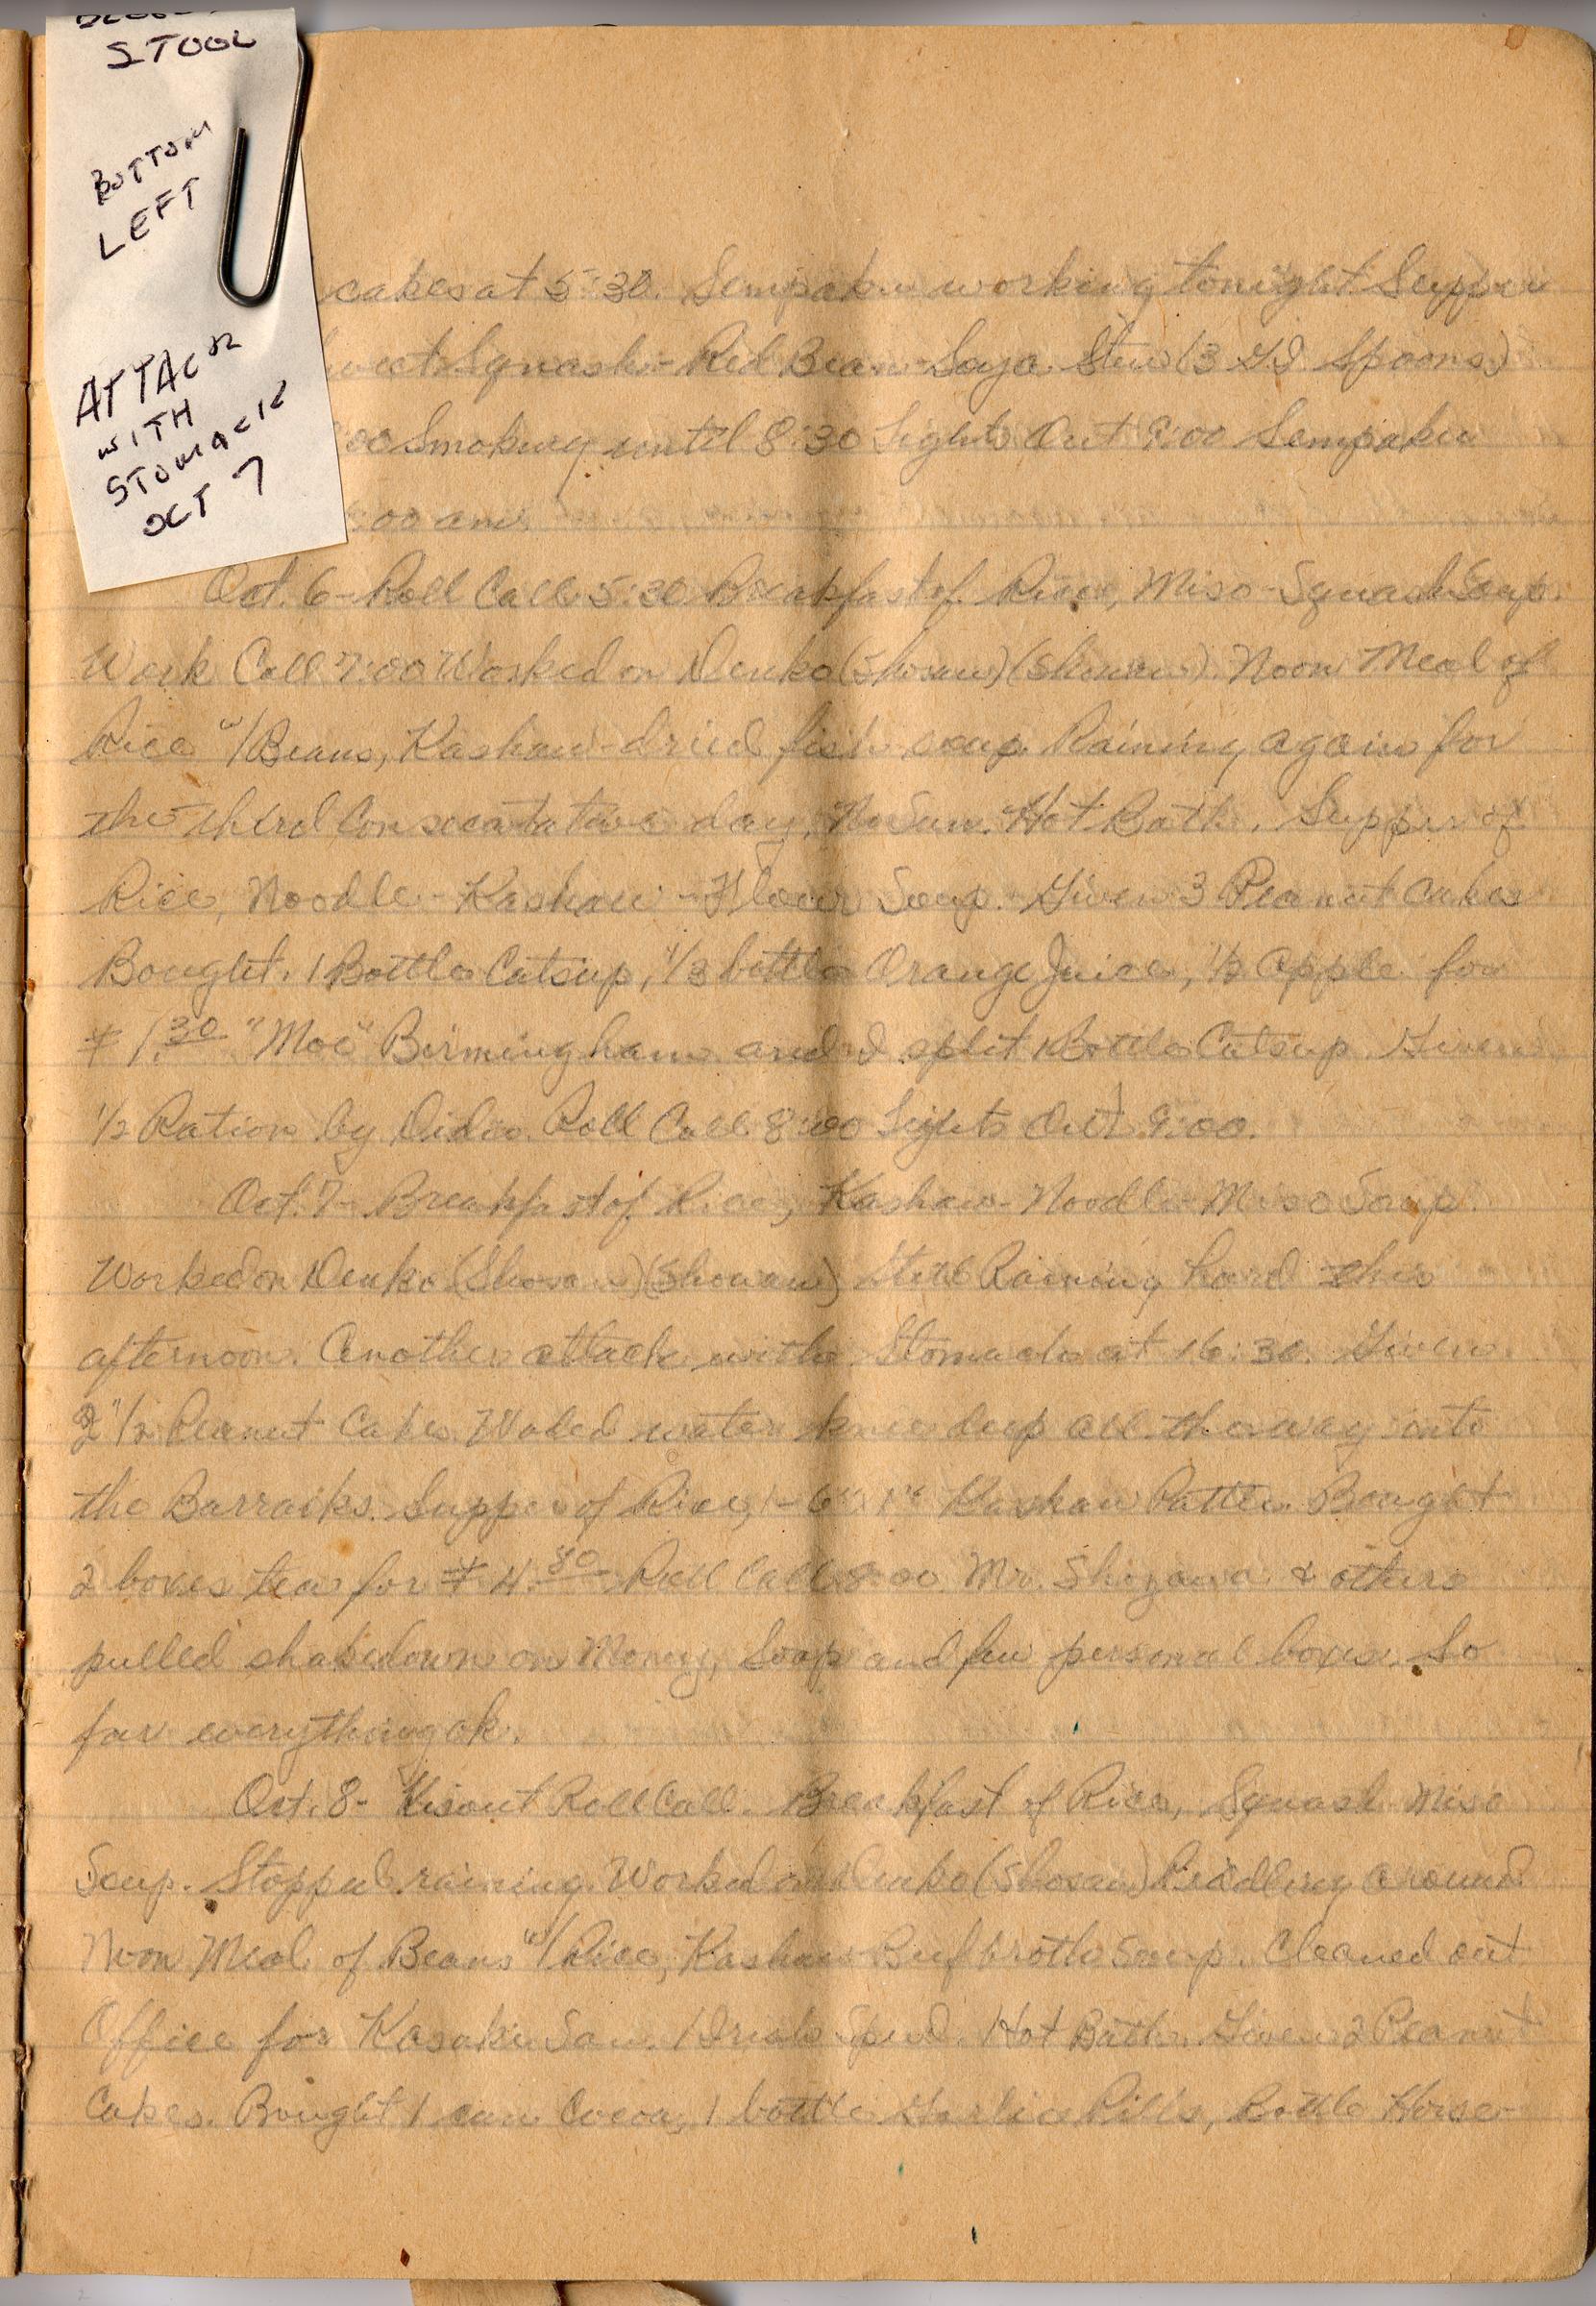 STOOL
BOTTOM
LEFT
ATTACK
WITH
STOMACK
OCT 7
cakes at 5:30. Sempaku working tonight Supper
Squash - Red Bean - Soya Stew (3 GI Spoons)
:00 Smoking until 8:30 Lights Out 9:00 Sempaku
:00 am.
Oct. 6 - Roll Call 5:30 Breakfast of Rice, Miso - Squash Soup.
Work Call 7:00 Worked on Denko (Shosan) (Showan). Noon Meal of
Rice w/Beans, Kashaw - dried fish soup. Raining again for
the third day. No Sun. Hot Bath. Supper of
Rice, Noodle - Kashaw - Flour Soup. Given 3 Peanut Cakes
Bought. 1 Bottle Catsup, 1/3 bottle Orange Juice, 1/2 Apple for
¥ 1.30 "Moe" Birmingham and I split 1 Bottle Catsup. Given
1/2 Ration by Roll Call 8:00 Lights Out 9:00.
Oct. 7 - Breakfast of Rice, Kashaw - Noodle - Miso Soup.
Worked on Denko (Shosan) (Showan) Still Raining hard this
afternoon. Another attack with Stomach at 16:30. Given
2 1/2 Peanut Cake. Waded water knee deep all the way into
the Barracks. Supper of Rice, 1 - 6" x 1" Kashaw Pattie. Bought
2 boxes tea for ¥ 4.80 Roll Call 8:00 Mr. Shizawa & others
pulled shakedown on Money, Soap and few personal boxes. So
far everything ok.
Oct. 8 - Roll Call. Breakfast of Rice, Squash Miso
Soup. Stopped raining. Worked on Denko (Shosan) around
Noon Meal of Beans w/Rice, Kashaw Beef broth Soup. Cleaned out
Office for Kasaki San. 1 Irish Spud. Hot Bath. Given 2 Peanut
Cakes. Bought 1 can Cocoa, 1 bottle Garlic Pills, Bottle Horse-